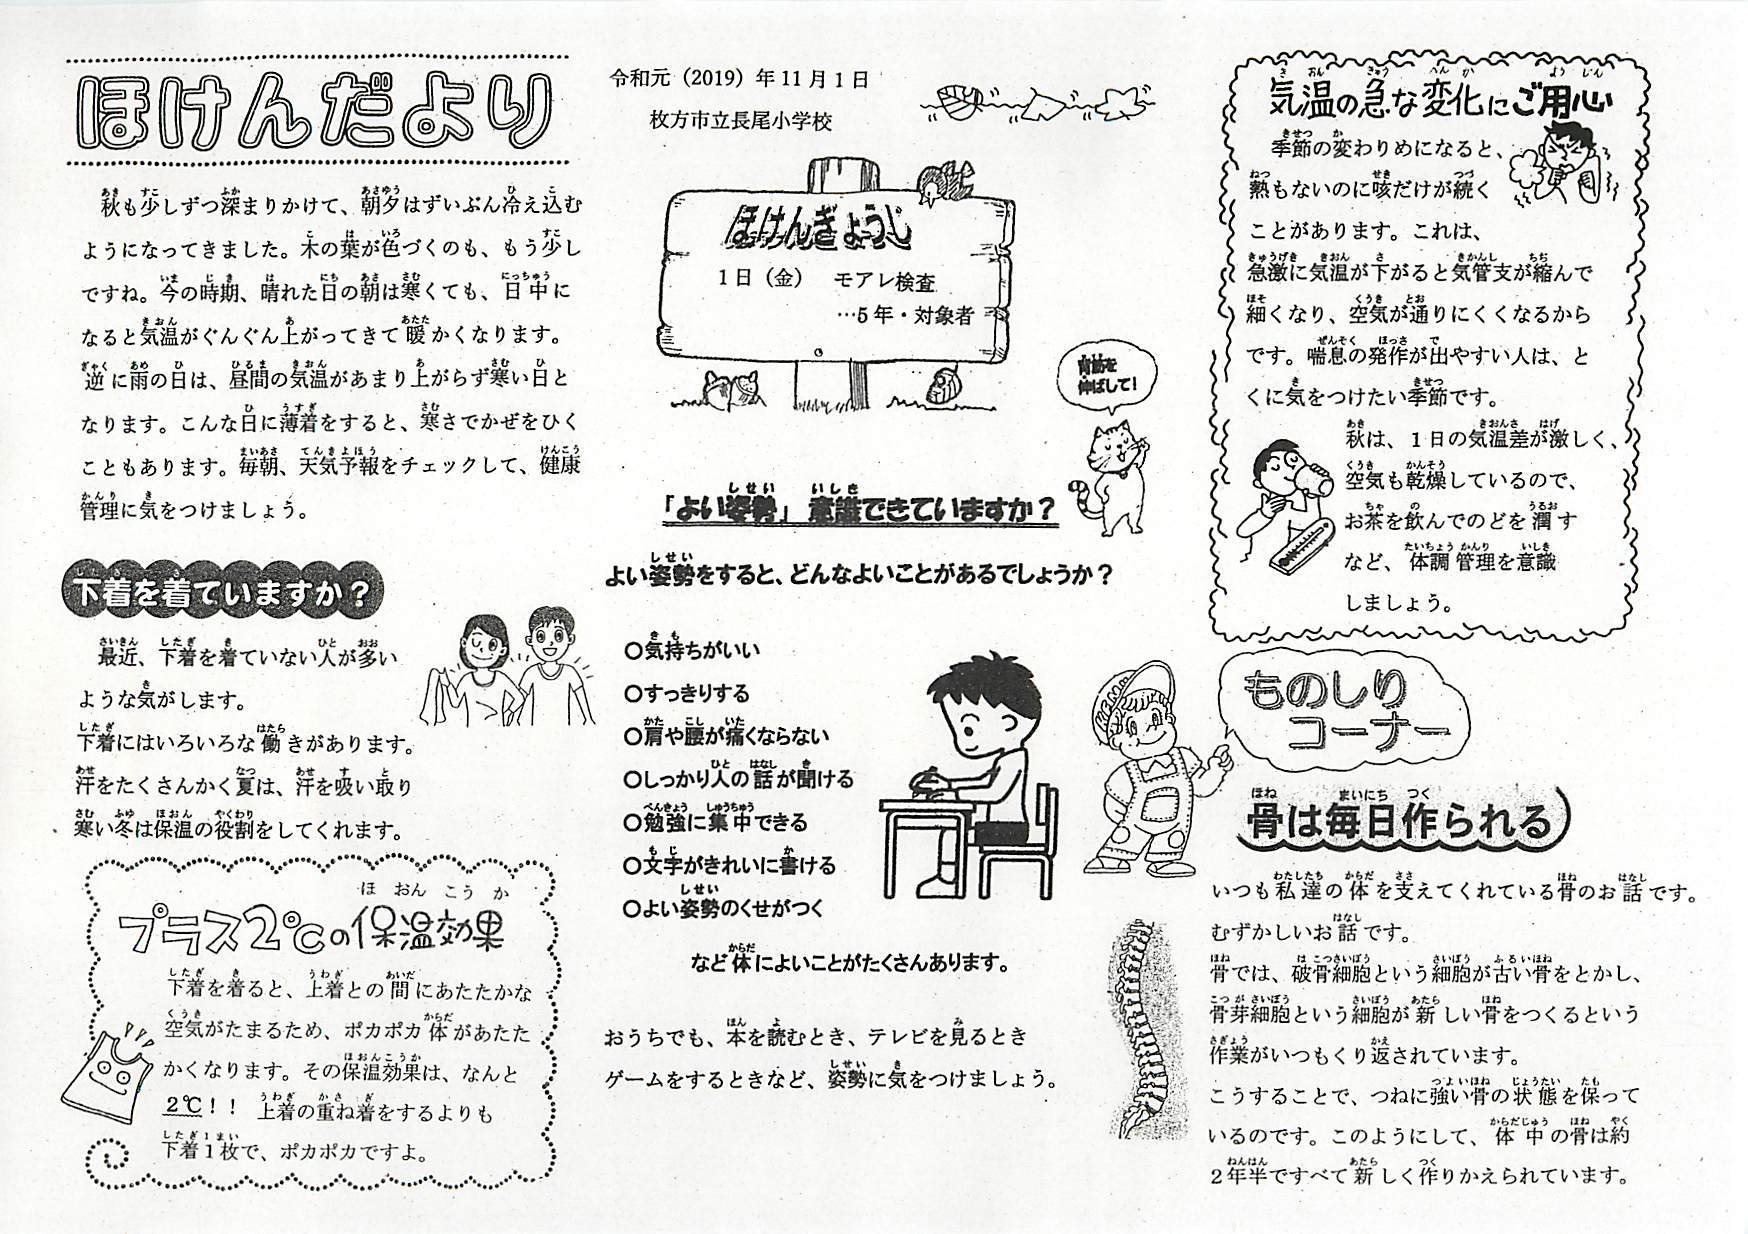 ほけんだより
令和元（2019）年11月1日
枚方市立長尾小学校
秋も少しずつ深まりかけて、朝夕はずいぶん冷え込む
ようになってきました。木の葉が色づくのも、もう少し
ですね。今の時期、晴れた日の朝は寒くても、日中に
なると気温がぐんぐん上がってきて暖かくなります。
逆に雨の日は、昼間の気温があまり上がらず寒い日と
なります。こんな日に薄着をすると、寒さでかぜをひく
こともあります。毎朝、天気予報をチェックして、健康
管理に気をつけましょう。
下着を着ていますか？
最近、下着を着ていない人が多い
ような気がします。
下着にはいろいろな働きがあります。
汗をたくさんかく夏は、汗を吸い取り
寒い冬は保温の役割をしてくれます。
プラス2℃の保温効果
下着を着ると、上着との間にあたたかな
空気がたまるため、ポカポカ体があたた
かくなります。その保温効果は、なんと
2℃！！ 上着の重ね着をするよりも
下着1枚で、ポカポカですよ。
ほけんぎょうじ
1日（金） モアレ検査
…5年・対象者
背筋を
伸ばして！
「よい姿勢」意識できていますか？
よい姿勢をすると、どんなよいことがあるでしょうか？
○気持ちがいい
○すっきりする
○肩や腰が痛くならない
○しっかり人の話が聞ける
○勉強に集中できる
○文字がきれいに書ける
○よい姿勢のくせがつく
など体によいことがたくさんあります。
おうちでも、本を読むとき、テレビを見るとき
ゲームをするときなど、姿勢に気をつけましょう。
気温の急な変化にご用心
季節の変わりめになると、
熱もないのに咳だけが続く
ことがあります。これは、
急激に気温が下がると気管支が縮んで
細くなり、空気が通りにくくなるから
です。喘息の発作が出やすい人は、と
くに気をつけたい季節です。
秋は、1日の気温差が激しく、
空気も乾燥しているので、
お茶を飲んでのどを潤す
など、体調管理を意識
しましょう。
ものしり
コーナー
骨は毎日作られる
いつも私達の体を支えてくれている骨のお話です。
むずかしいお話です。
骨では、破骨細胞という細胞が古い骨をとかし、
骨芽細胞という細胞が新しい骨をつくるという
作業がいつもくり返されています。
こうすることで、つねに強い骨の状態を保って
いるのです。このようにして、体中の骨は約
2年半ですべて新しく作りかえられています。